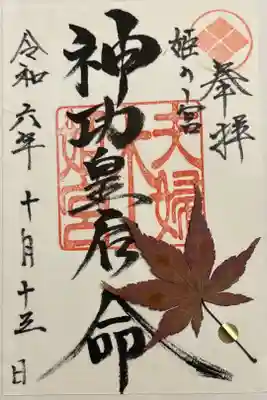 奉拝
姫の宮
神功皇后命
令和六年十月十三日
夫婦
姫宮